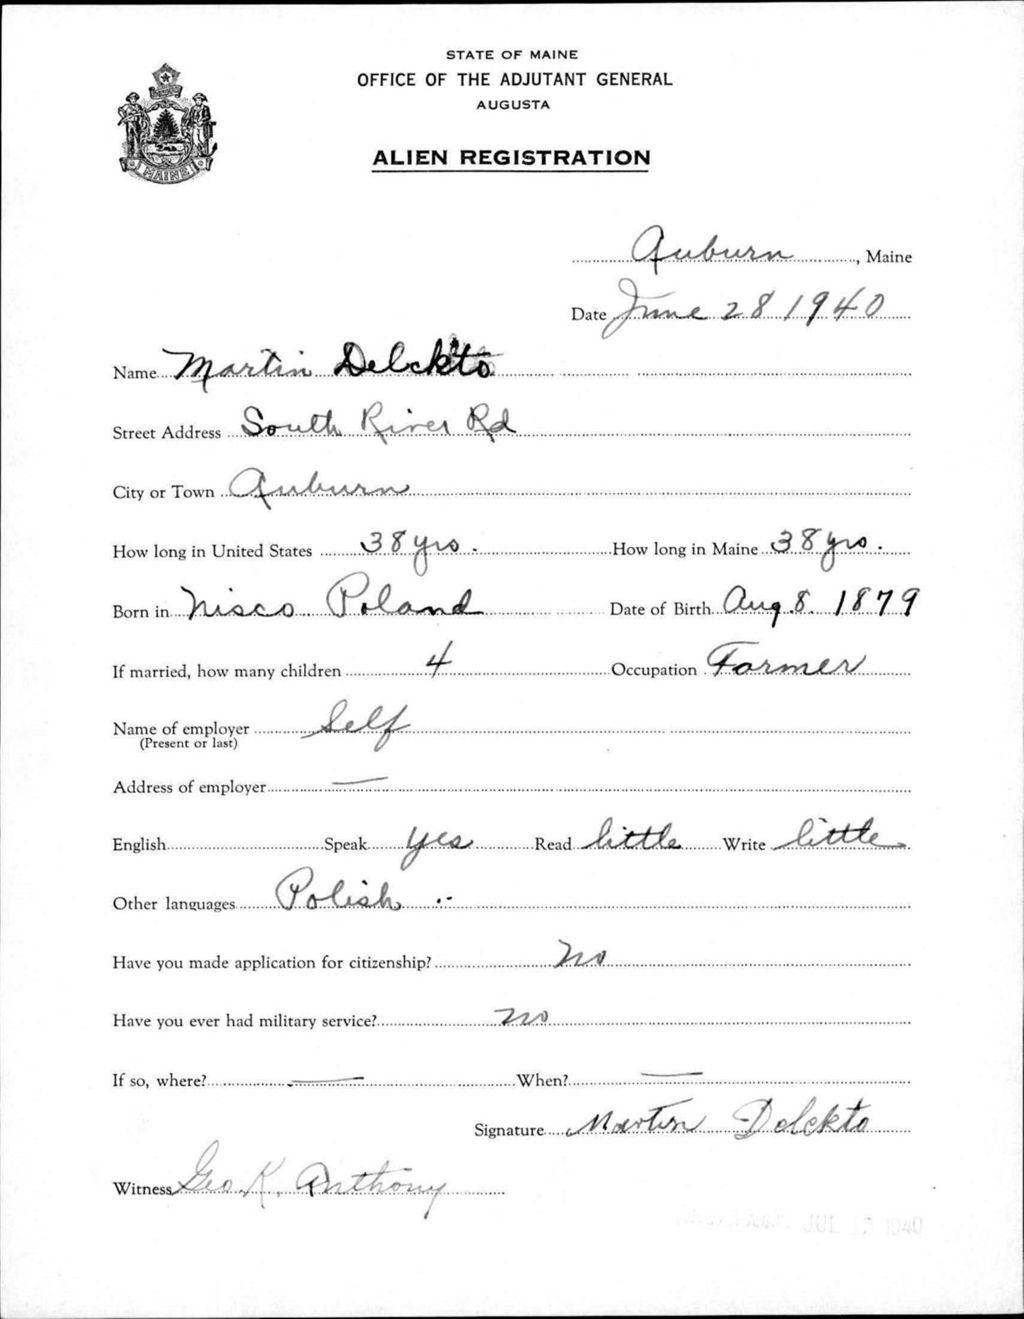 STATE OF MAINE
OFFICE OF THE ADJUTANT GENERAL
AUGUSTA
ALIEN REGISTRATION
MAINE
Auburn, Maine
Date June 28 1940
Name Martin Delckto
Street Address South River Rd
City or Town Auburn
How long in United States 38 yrs. How long in Maine 38 yrs.
Born in Nisco Poland Date of Birth Aug 8. 1879
If married, how many children 4 Occupation Farmer
Name of employer Self
(Present or last)
Address of employer —
English Speak yes Read little Write little
Other languages Polish
Have you made application for citizenship? No
Have you ever had military service? No
If so, where? — When? —
Signature Martin Delckto
Witness Geo K. Anthony
JUL 1940